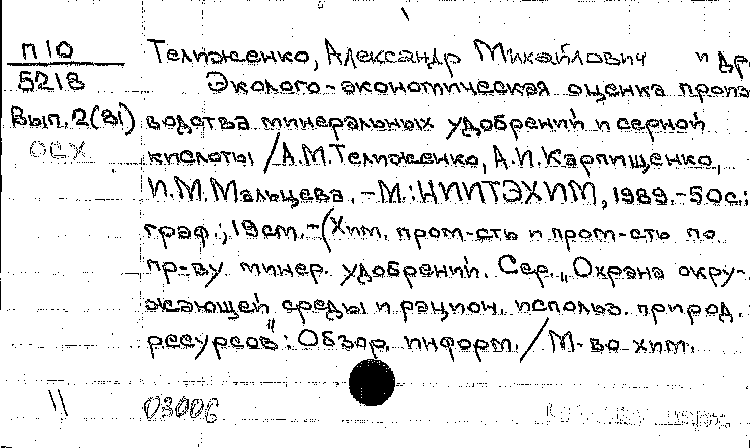 П10 Телиженко, Александр Михайлович и др
5218 Эколого-экономическая оценка произ
Вып. 2(81) водства минеральных удобрений и серной
ОСХ кислоты /А.М.Телиженко, А.И.Карпищенко,
И.М.Мальцева. - М.: НИИТЭХИМ, 1989. - 50с.:
граф.; 19см. - (Хим. пром-сть и пром-сть по
пр-ву минер. удобрений. Сер. „Охрана окру-
жающей среды и рацион. использ. природ.
ресурсов": Обзор. информ. / М-во хим.
11 03006